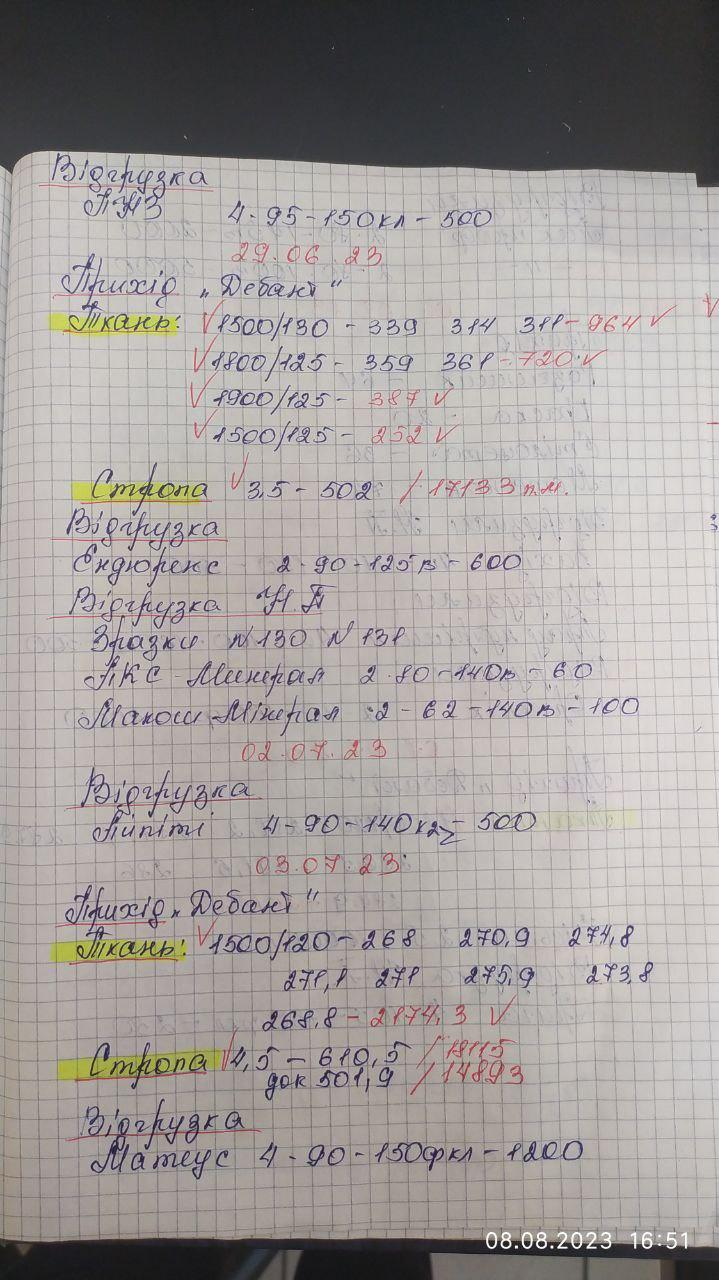 Відгрузка
ПНЗ 4-95-150кл-500
29.06.23
Прихід „Дебант"
Ткань: 1500/130 - 339 314 311 - 964
1800/125 - 359 361 - 720
1900/125 - 387
1500/125 - 252
Стропа 3,5 - 502 / 17133 п.м.
Відгрузка
Ендюренс 2-90-125в-600
Відгрузка Н.П
Зразки №130 №131
ПКС-Минерал 2-80-140в-60
Макош-Мінерал 2-62-140в-100
02.07.23
Відгрузка
Пйпіті 4-90-140кл-500
03.07.23
Прихід „Дебант"
Ткань: 1500/120 - 268 270,9 274,8
271,1 271 275,9 273,8
268,8 - 2174,3
Стропа 4,5 - 610,5 / 18115
док 501,9 / 14893
Відгрузка
Матеус 4-90-150фкл-1200
08.08.2023 16:51